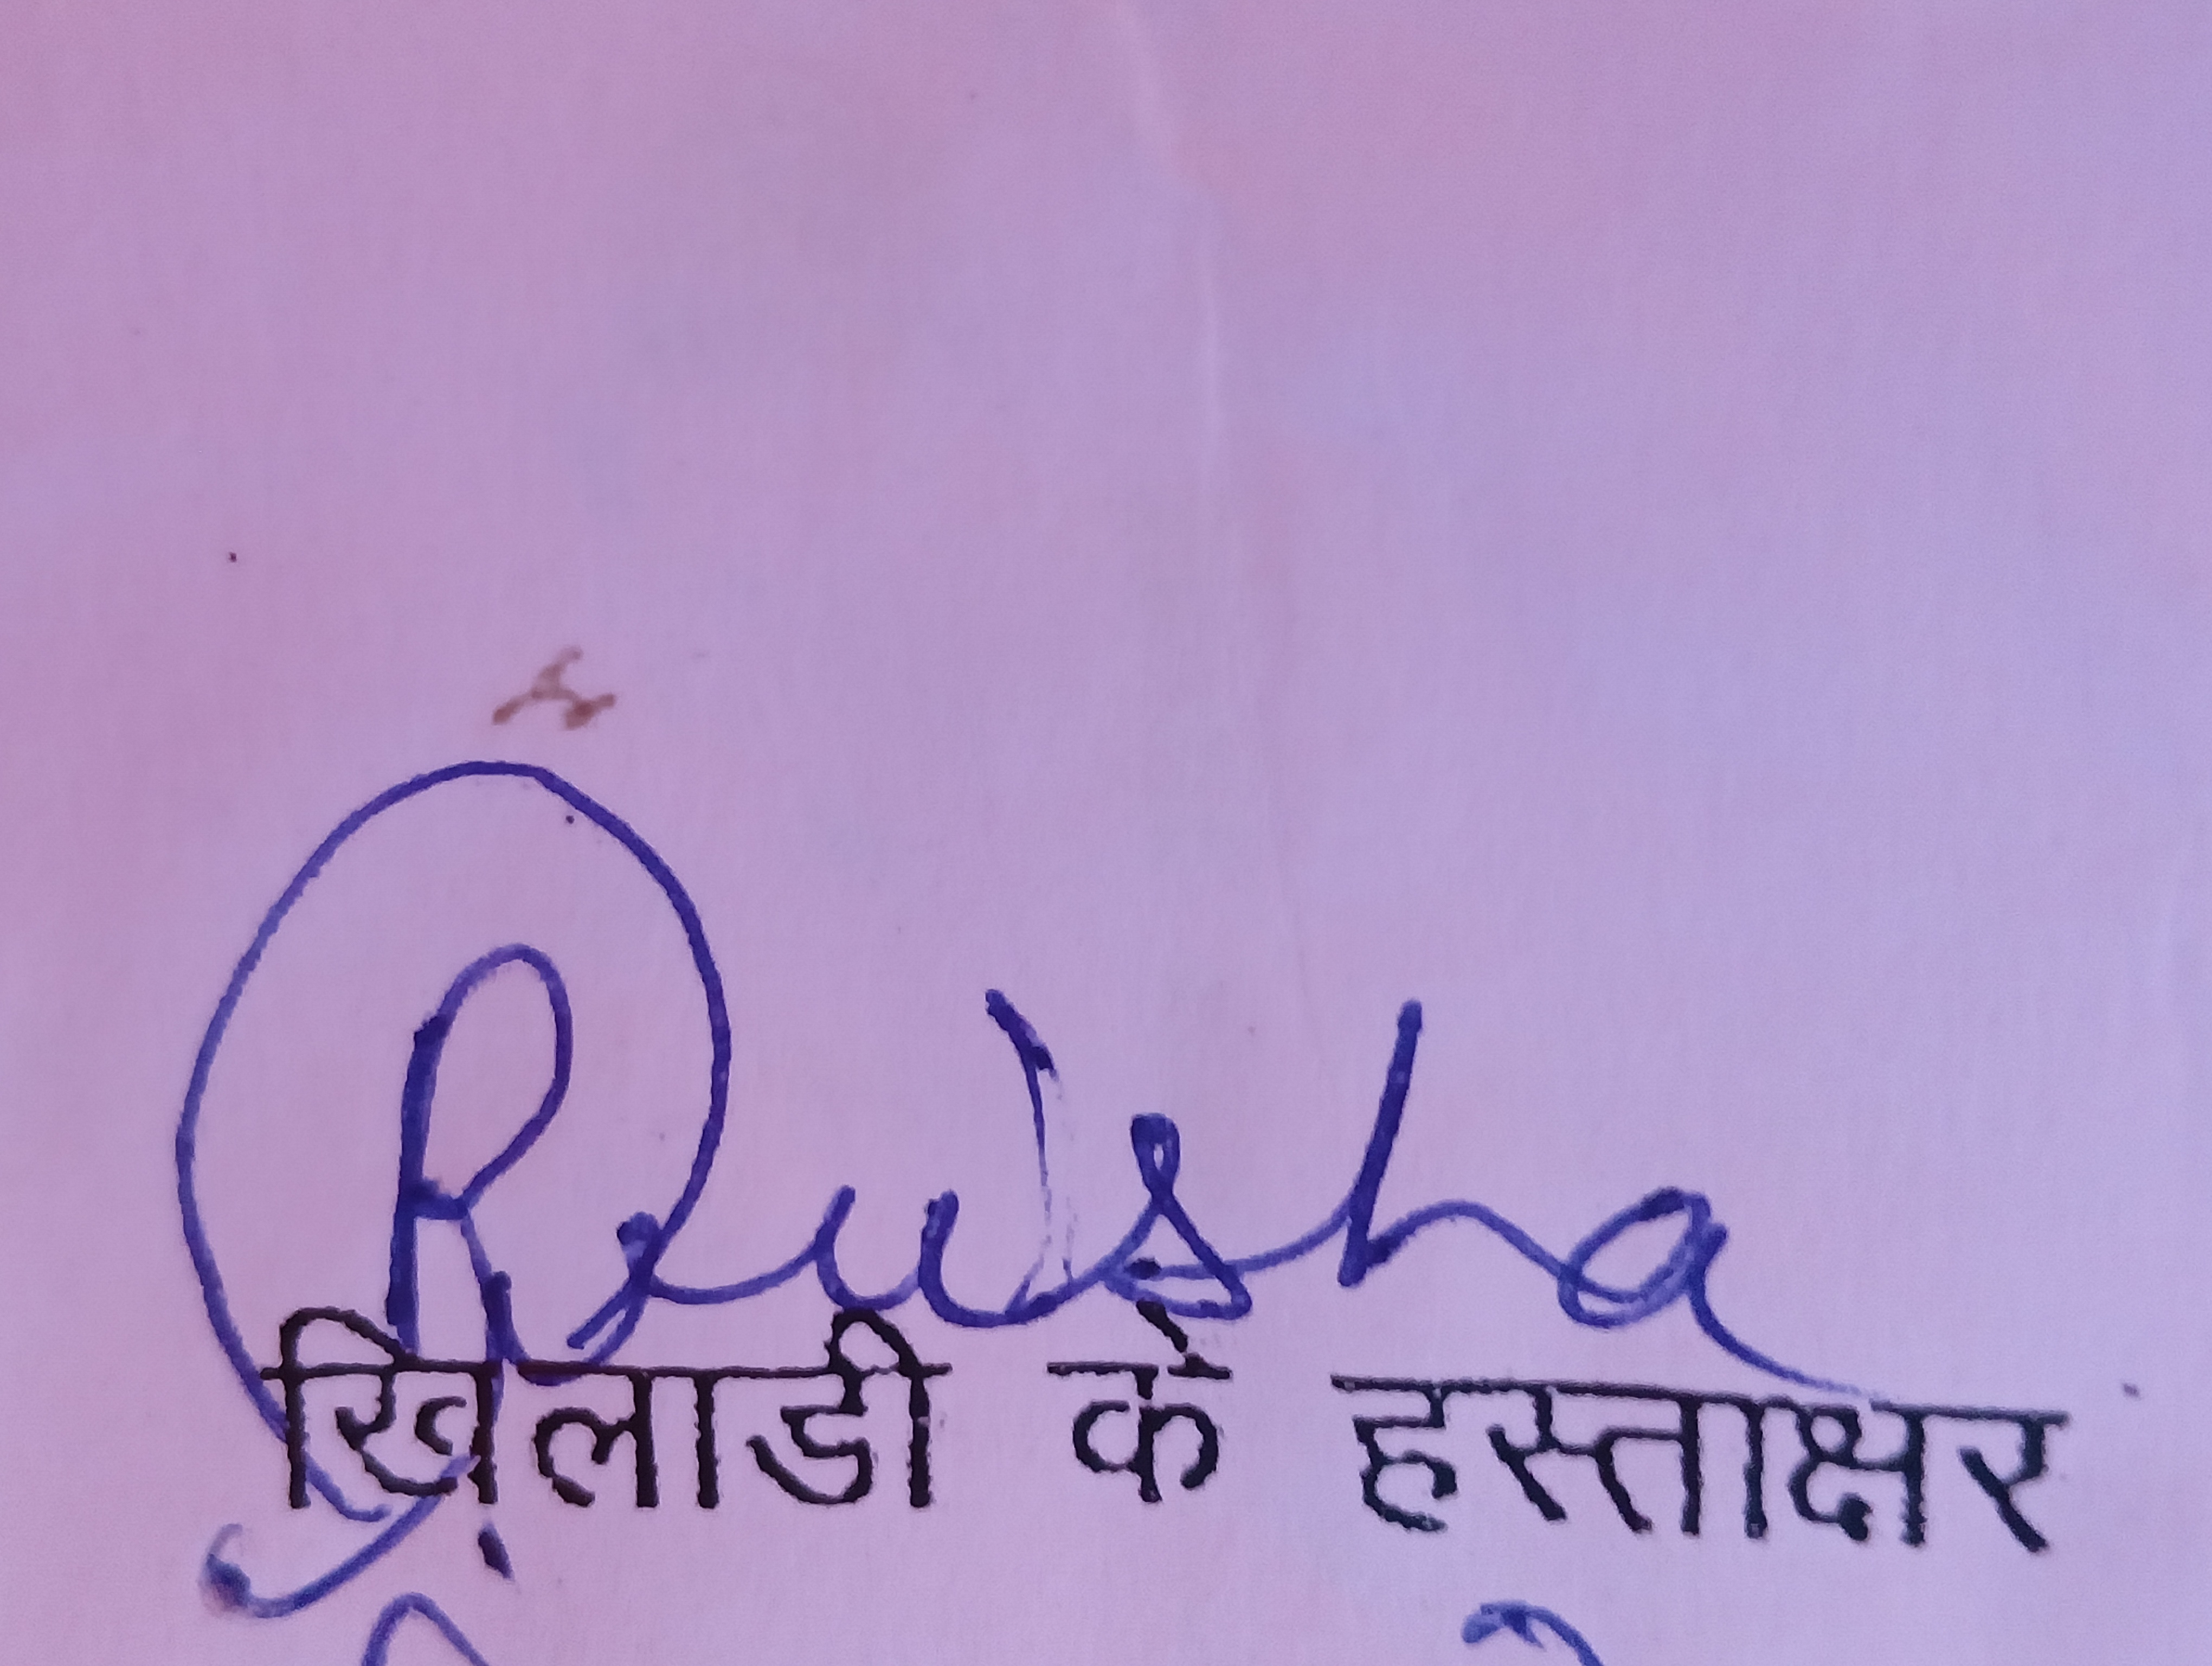 Rusha
खिलाडी के हस्ताक्षर